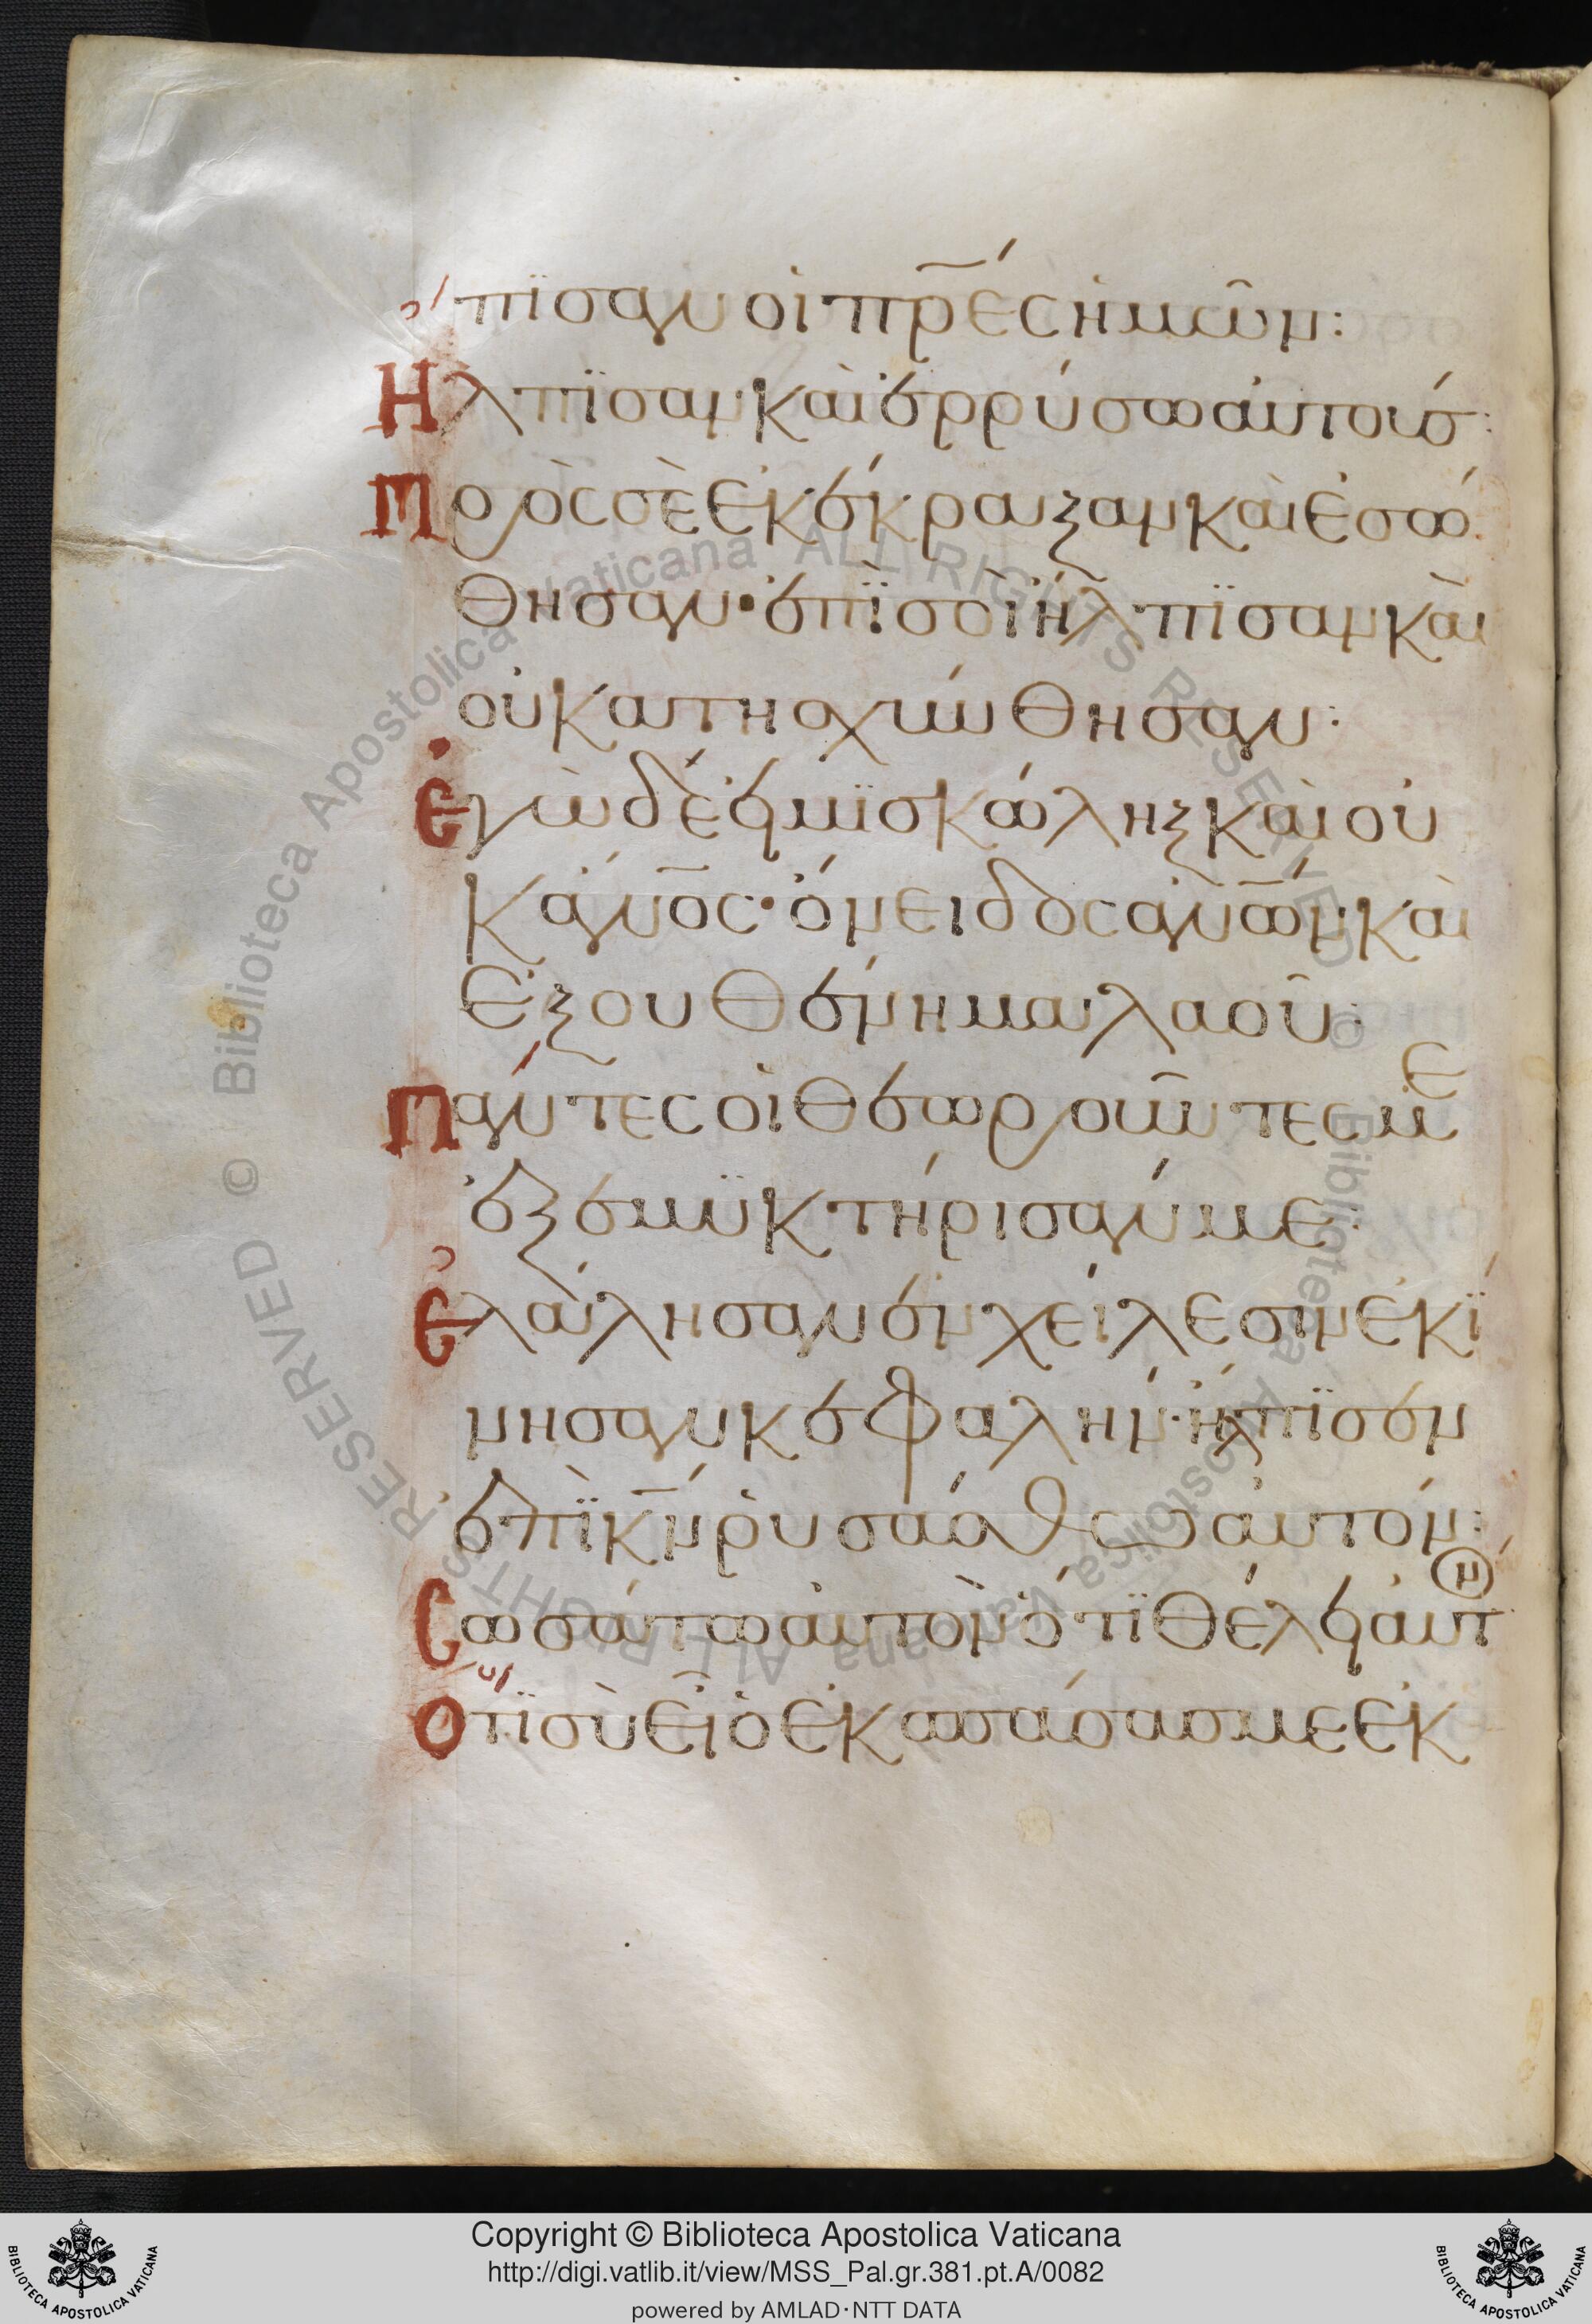 πϊσαν οἱ πρ̅ες ἡμῶν:
Ηλπϊσαν καὶ ἐρρύσω αὐτούς:
Προς σὲ ἐκέκραξαν καὶ ἐσώ
θησαν· ἐπϊ σοὶ ἤλπϊσαν καὶ
οὐ κατησχύνθησαν:
Ἐγὼ δέ εἰμϊ σκώληξ καὶ οὐ
κ ἄν̅ος· ὄνειδος ἀν̅ων καὶ
ἐξουθένημα λαοῦ:
Πάντες οἱ θεωροῦντές με
ἐξεμϋκτήρισάν με:
Ἐλάλησαν ἐν χείλεσιν ἐκί
νησαν κεφαλήν· ἤλπϊσεν
ἐπὶ κ̅ν ῥυσάσθω αὐτόν:
Σωσάτω αὐτὸν ὅτϊ θέλει αὐτον
Οτϊ σὺ εἶ ὁ ἐκσπάσας με ἐκ
Copyright © Biblioteca Apostolica Vaticana
http://digi.vatlib.it/view/MSS_Pal.gr.381.pt.A/0082
powered by AMLAD·NTT DATA
BIBLIOTECA APOSTOLICA VATICANA
BIBLIOTECA APOSTOLICA VATICANA
© Biblioteca Apostolica Vaticana ALL RIGHTS RESERVED
© Biblioteca Apostolica Vaticana ALL RIGHTS RESERVED